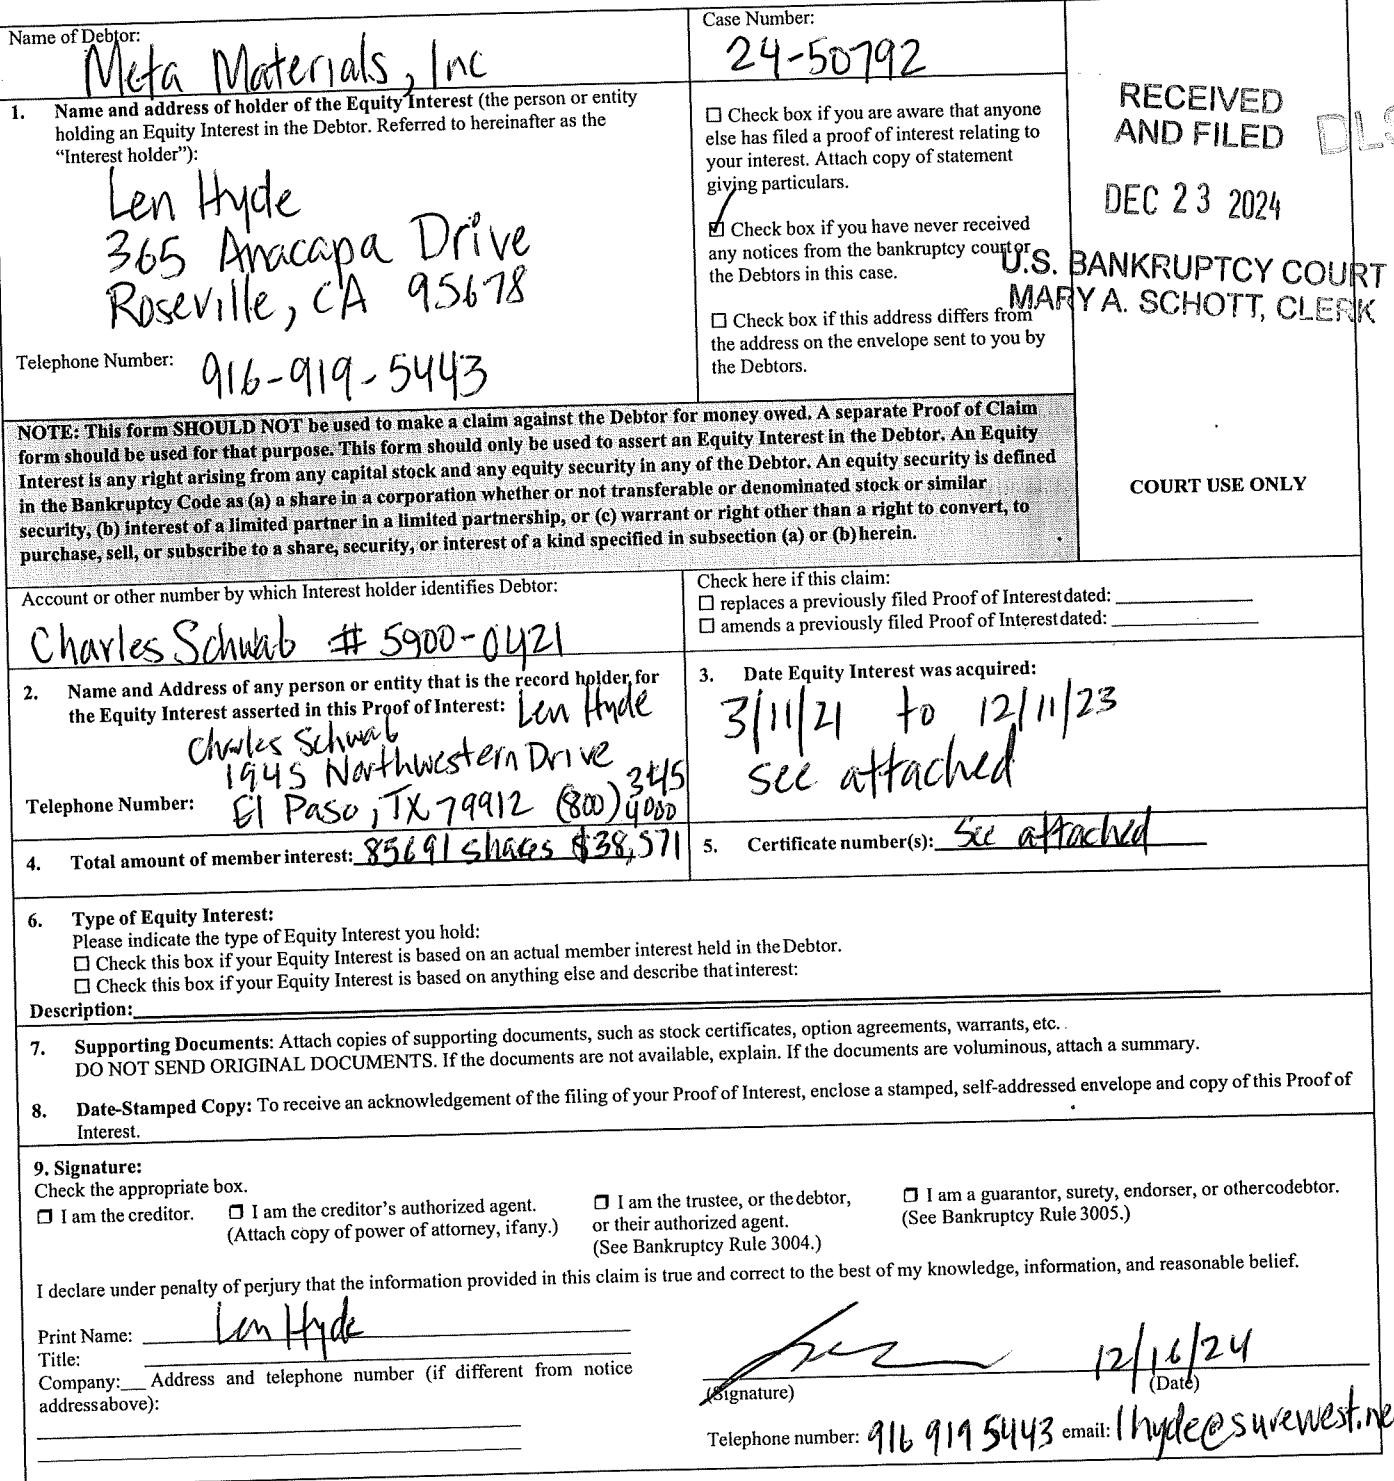 Name of Debtor:
Meta Materials, Inc
Case Number:
24-50792
1. Name and address of holder of the Equity Interest (the person or entity
holding an Equity Interest in the Debtor. Referred to hereinafter as the
“Interest holder”):
Len Hyde
365 Anacapa Drive
Roseville, CA 95678
Telephone Number: 916-919-5443
☐ Check box if you are aware that anyone
else has filed a proof of interest relating to
your interest. Attach copy of statement
giving particulars.
☑ Check box if you have never received
any notices from the bankruptcy court or
the Debtors in this case.
☐ Check box if this address differs from
the address on the envelope sent to you by
the Debtors.
RECEIVED
AND FILED
DLS
DEC 23 2024
U.S. BANKRUPTCY COURT
MARY A. SCHOTT, CLERK
NOTE: This form SHOULD NOT be used to make a claim against the Debtor for money owed. A separate Proof of Claim
form should be used for that purpose. This form should only be used to assert an Equity Interest in the Debtor. An Equity
Interest is any right arising from any capital stock and any equity security in any of the Debtor. An equity security is defined
in the Bankruptcy Code as (a) a share in a corporation whether or not transferable or denominated stock or similar
security, (b) interest of a limited partner in a limited partnership, or (c) warrant or right other than a right to convert, to
purchase, sell, or subscribe to a share, security, or interest of a kind specified in subsection (a) or (b) herein.
COURT USE ONLY
Account or other number by which Interest holder identifies Debtor:
Charles Schwab # 5900-0421
Check here if this claim:
☐ replaces a previously filed Proof of Interest dated:
☐ amends a previously filed Proof of Interest dated:
2. Name and Address of any person or entity that is the record holder for
the Equity Interest asserted in this Proof of Interest: Len Hyde
Charles Schwab
1945 Northwestern Drive
Telephone Number: El Paso, TX 79912 (800) 345 4000
3. Date Equity Interest was acquired:
3/11/21 to 12/11/23
see attached
4. Total amount of member interest: 85691 shares $38,571
5. Certificate number(s): See attached
6. Type of Equity Interest:
Please indicate the type of Equity Interest you hold:
☐ Check this box if your Equity Interest is based on an actual member interest held in the Debtor.
☐ Check this box if your Equity Interest is based on anything else and describe that interest:
Description:
7. Supporting Documents: Attach copies of supporting documents, such as stock certificates, option agreements, warrants, etc.
DO NOT SEND ORIGINAL DOCUMENTS. If the documents are not available, explain. If the documents are voluminous, attach a summary.
8. Date-Stamped Copy: To receive an acknowledgement of the filing of your Proof of Interest, enclose a stamped, self-addressed envelope and copy of this Proof of
Interest.
9. Signature:
Check the appropriate box.
☐ I am the creditor.
☐ I am the creditor’s authorized agent.
(Attach copy of power of attorney, if any.)
☐ I am the trustee, or the debtor,
or their authorized agent.
(See Bankruptcy Rule 3004.)
☐ I am a guarantor, surety, endorser, or other codebtor.
(See Bankruptcy Rule 3005.)
I declare under penalty of perjury that the information provided in this claim is true and correct to the best of my knowledge, information, and reasonable belief.
Print Name: Len Hyde
Title:
Company:__ Address and telephone number (if different from notice
address above):
12/16/24
(Signature)
(Date)
Telephone number: 916 919 5443 email: lhyde@surewest.ne